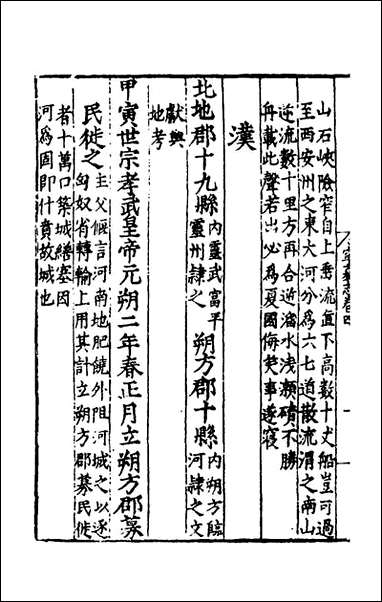 山石峽險窄自上垂流直下高數十丈船豈可過
至西安州之東大河分為六七道散流渭之南山
逆流數十里方再合逆溜水浅灘磧不勝
舟載此聲若出必為夏國侮笑事遂寢
漢
北地郡十九縣內靈武富平靈州隸之朔方郡十縣內朔方臨河隸之文
獻輿地考
甲寅世宗孝武皇帝元朔二年春正月立朔方郡募
民徙之主父偃言河南地肥饒外阻河城之以逐匈奴省轉輸上用其計立朔方郡募民徙
者十萬口築城繕塞因河為固即什賁故城也